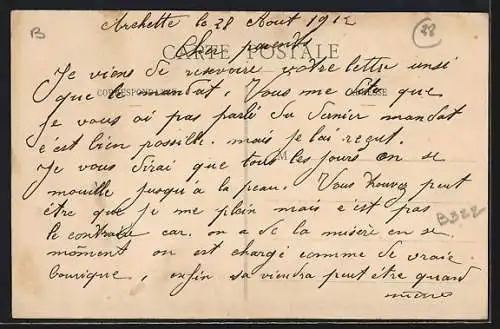 B
Archette le 28 Aout 1912
28
Cher parents
CARTE POSTALE
Je viens de resevoire votre lettre unsi
que le mandat. Vous me dite que
CORRESPONDANCE ADRESSE
je vous ai pas parlé du dernier mandat
c'est bien possible. mais je l'ai reçut.
M
Je vous dirai que tous les jours on se
mouille jusqu'a la peau. Vous trouvez peut
être que je me plein mais c'est pas
B322
le contraire car. on a de la misère en se
moment on est chargé comme de vraie
bourique, enfin sa viendra peut être quand
même